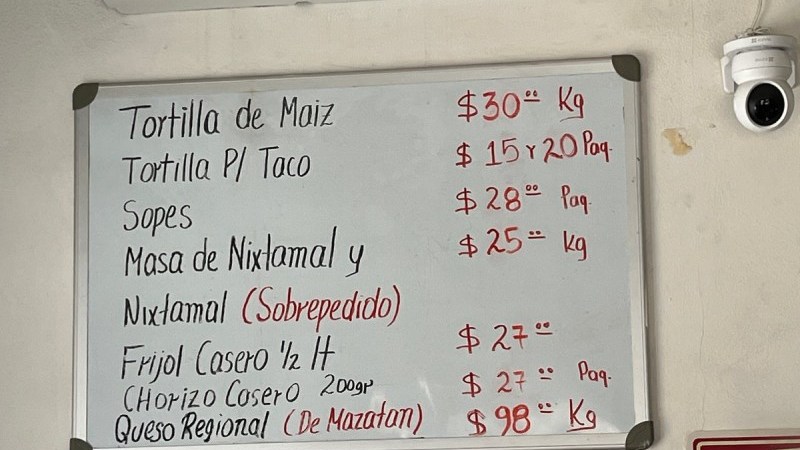 Tortilla de Maiz $30.00 Kg
Tortilla P/ Taco $ 15 Y 20 Paq.
Sopes $28.00 Paq.
Masa de Nixtamal y $25.00 kg
Nixtamal (Sobrepedido)
Frijol Casero 1/2 lt $27.00
CHorizo Casero 200gr $27.00 Paq.
Queso Regional (De Mazatan) $98.00 Kg